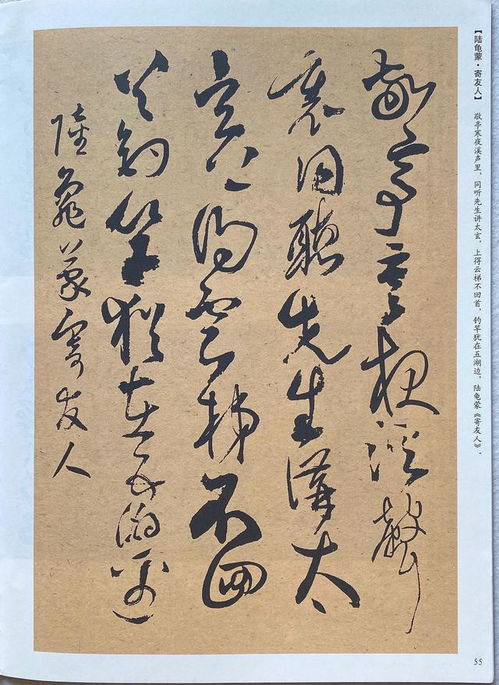 【陆龟蒙·寄友人】 敬亭寒夜溪声里，同听先生讲太玄。上得云梯不回首，钓竿犹在五湖边。陆龟蒙《寄友人》。
敬亭寒夜溪聲
裏同聽先生講太
玄上得雲梯不回
首釣竿猶在五湖邊
陸龜蒙寄友人
55